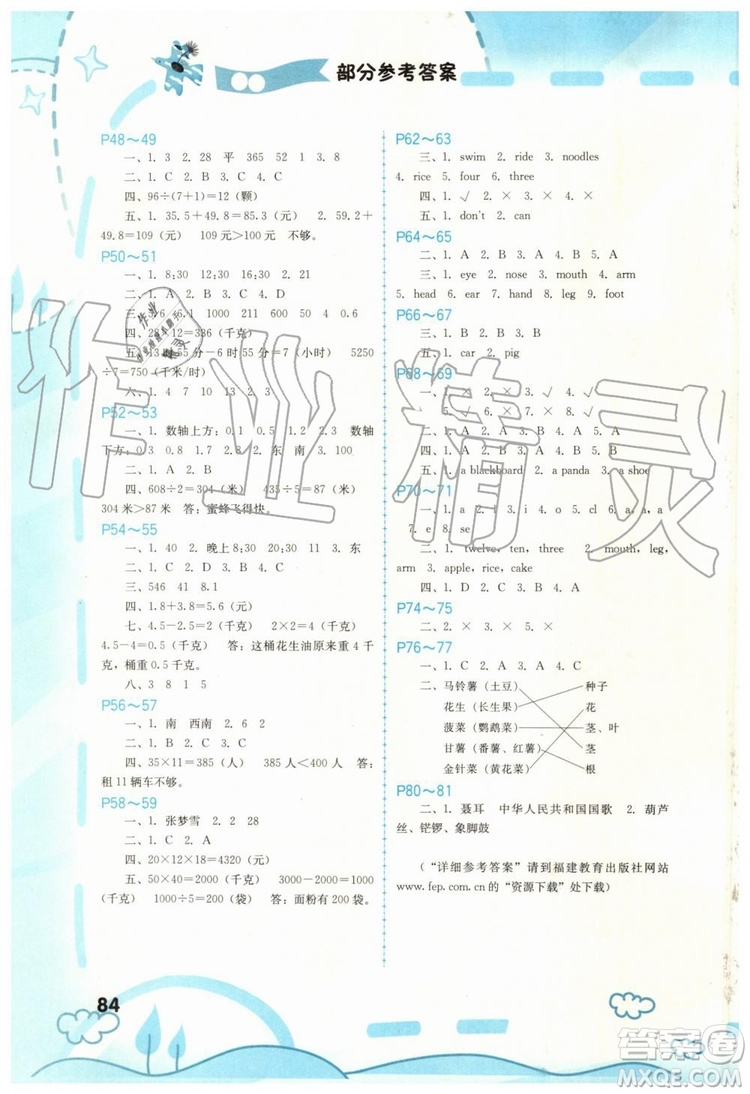 部分参考答案
P48～49
一、1. 3 2. 28 平 365 52 1 3. 8
二、1. B 2. C 3. A 4. D
四、96÷(7+1)=12（颗）
五、1. 35.5＋49.8＝85.3（元） 2. 59.2＋
49.8＝109（元） 109元＞100元 不够。
P50～51
一、1. 8:30 12:30 16:30 2. 4
二、1. A 2. B 3. C 4. D
三、176 6.1 1000 211 600 50 4 0.6
四、28×12＝336（千克）
五、13时55分－6时55分＝7（小时） 5250
÷7＝750（千米/时）
六、1. 4 7 10 13 2. 2 3. 4
P52～53
一、1. 数轴上方：0.1 0.5 1.2 2.3 数轴
下方：0.3 0.8 1.7 2. 东 南 3. 100
二、1. A 2. B
四、608÷2＝304（米） 435÷5＝87（米）
304米＞87米 答：蜜蜂飞得快。
P54～55
一、1. 40 2. 晚上8:30 20:30 3. 11 3. 东
三、546 41 8.1
四、1.8＋3.8＝5.6（元）
七、4.5－2.5＝2（千克） 2×2＝4（千克）
4.5－4＝0.5（千克） 答：这桶花生油原来重4千
克，桶重0.5千克。
八、3 8 1 5
P56～57
一、1. 南 西南 2. 6 2
二、1. A 2. B 3. C
四、35×11＝385（人） 385＜400 答：
租11辆车不够。
P58～59
一、1. 张梦雪 2. 2 54
二、1. C 2. A
四、20×12×18＝4320（元）
五、50×40＝2000（千克） 3000－2000＝
1000（千克） 1000÷5＝200（袋） 答：面粉有200袋。
P62～63
三、1. swim 2. ride 3. noodles
4. rice 5. four 6. three
四、1. √ 2. × 3. × 4. ×
五、1. don't 2. can
P64～65
一、1. A 2. B 3. A 4. A 5. B
三、1. eye 2. nose 3. mouth 4. arm
5. head 6. ear 7. hand 8. leg 9. foot
P66～67
三、1. B 2. B 3. A 4. B 5. B
五、1. ear 2. car 3. pig
P68～69
一、1. × 2. × 3. √ 4. √
5. √ 6. × 7. × 8. √
二、1. B 2. A 3. A 4. B 5. B
四、1. A 2. B 3. A 4. C
五、1. a blackboard 2. a panda 3. a shoe
P70～71
一、1. a 2. i 3. i 4. o 5. cl 6. a
7. e 8. se
二、1. twelve, ten, three 2. mouth, leg,
arm 3. apple, rice, cake
四、1. D 2. C 3. B 4. A
P74～75
二、2. × 3. × 4. × 5. ×
P76～77
一、1. C 2. C 3. A 4. B
二、马铃薯（土豆） 种子
花生（长生果） 花
菠菜（鹦鹉菜） 茎、叶
甘薯（番薯、红薯） 茎
金针菜（黄花菜） 根
P80～81
二、1. 聂耳 中华人民共和国国歌 2. 葫芦
丝、铓锣、象脚鼓
（“详细参考答案”请到福建教育出版社网站
www.fep.com.cn的“资源下载”处下载）
84
作业精灵
答案圈
MXQE.COM